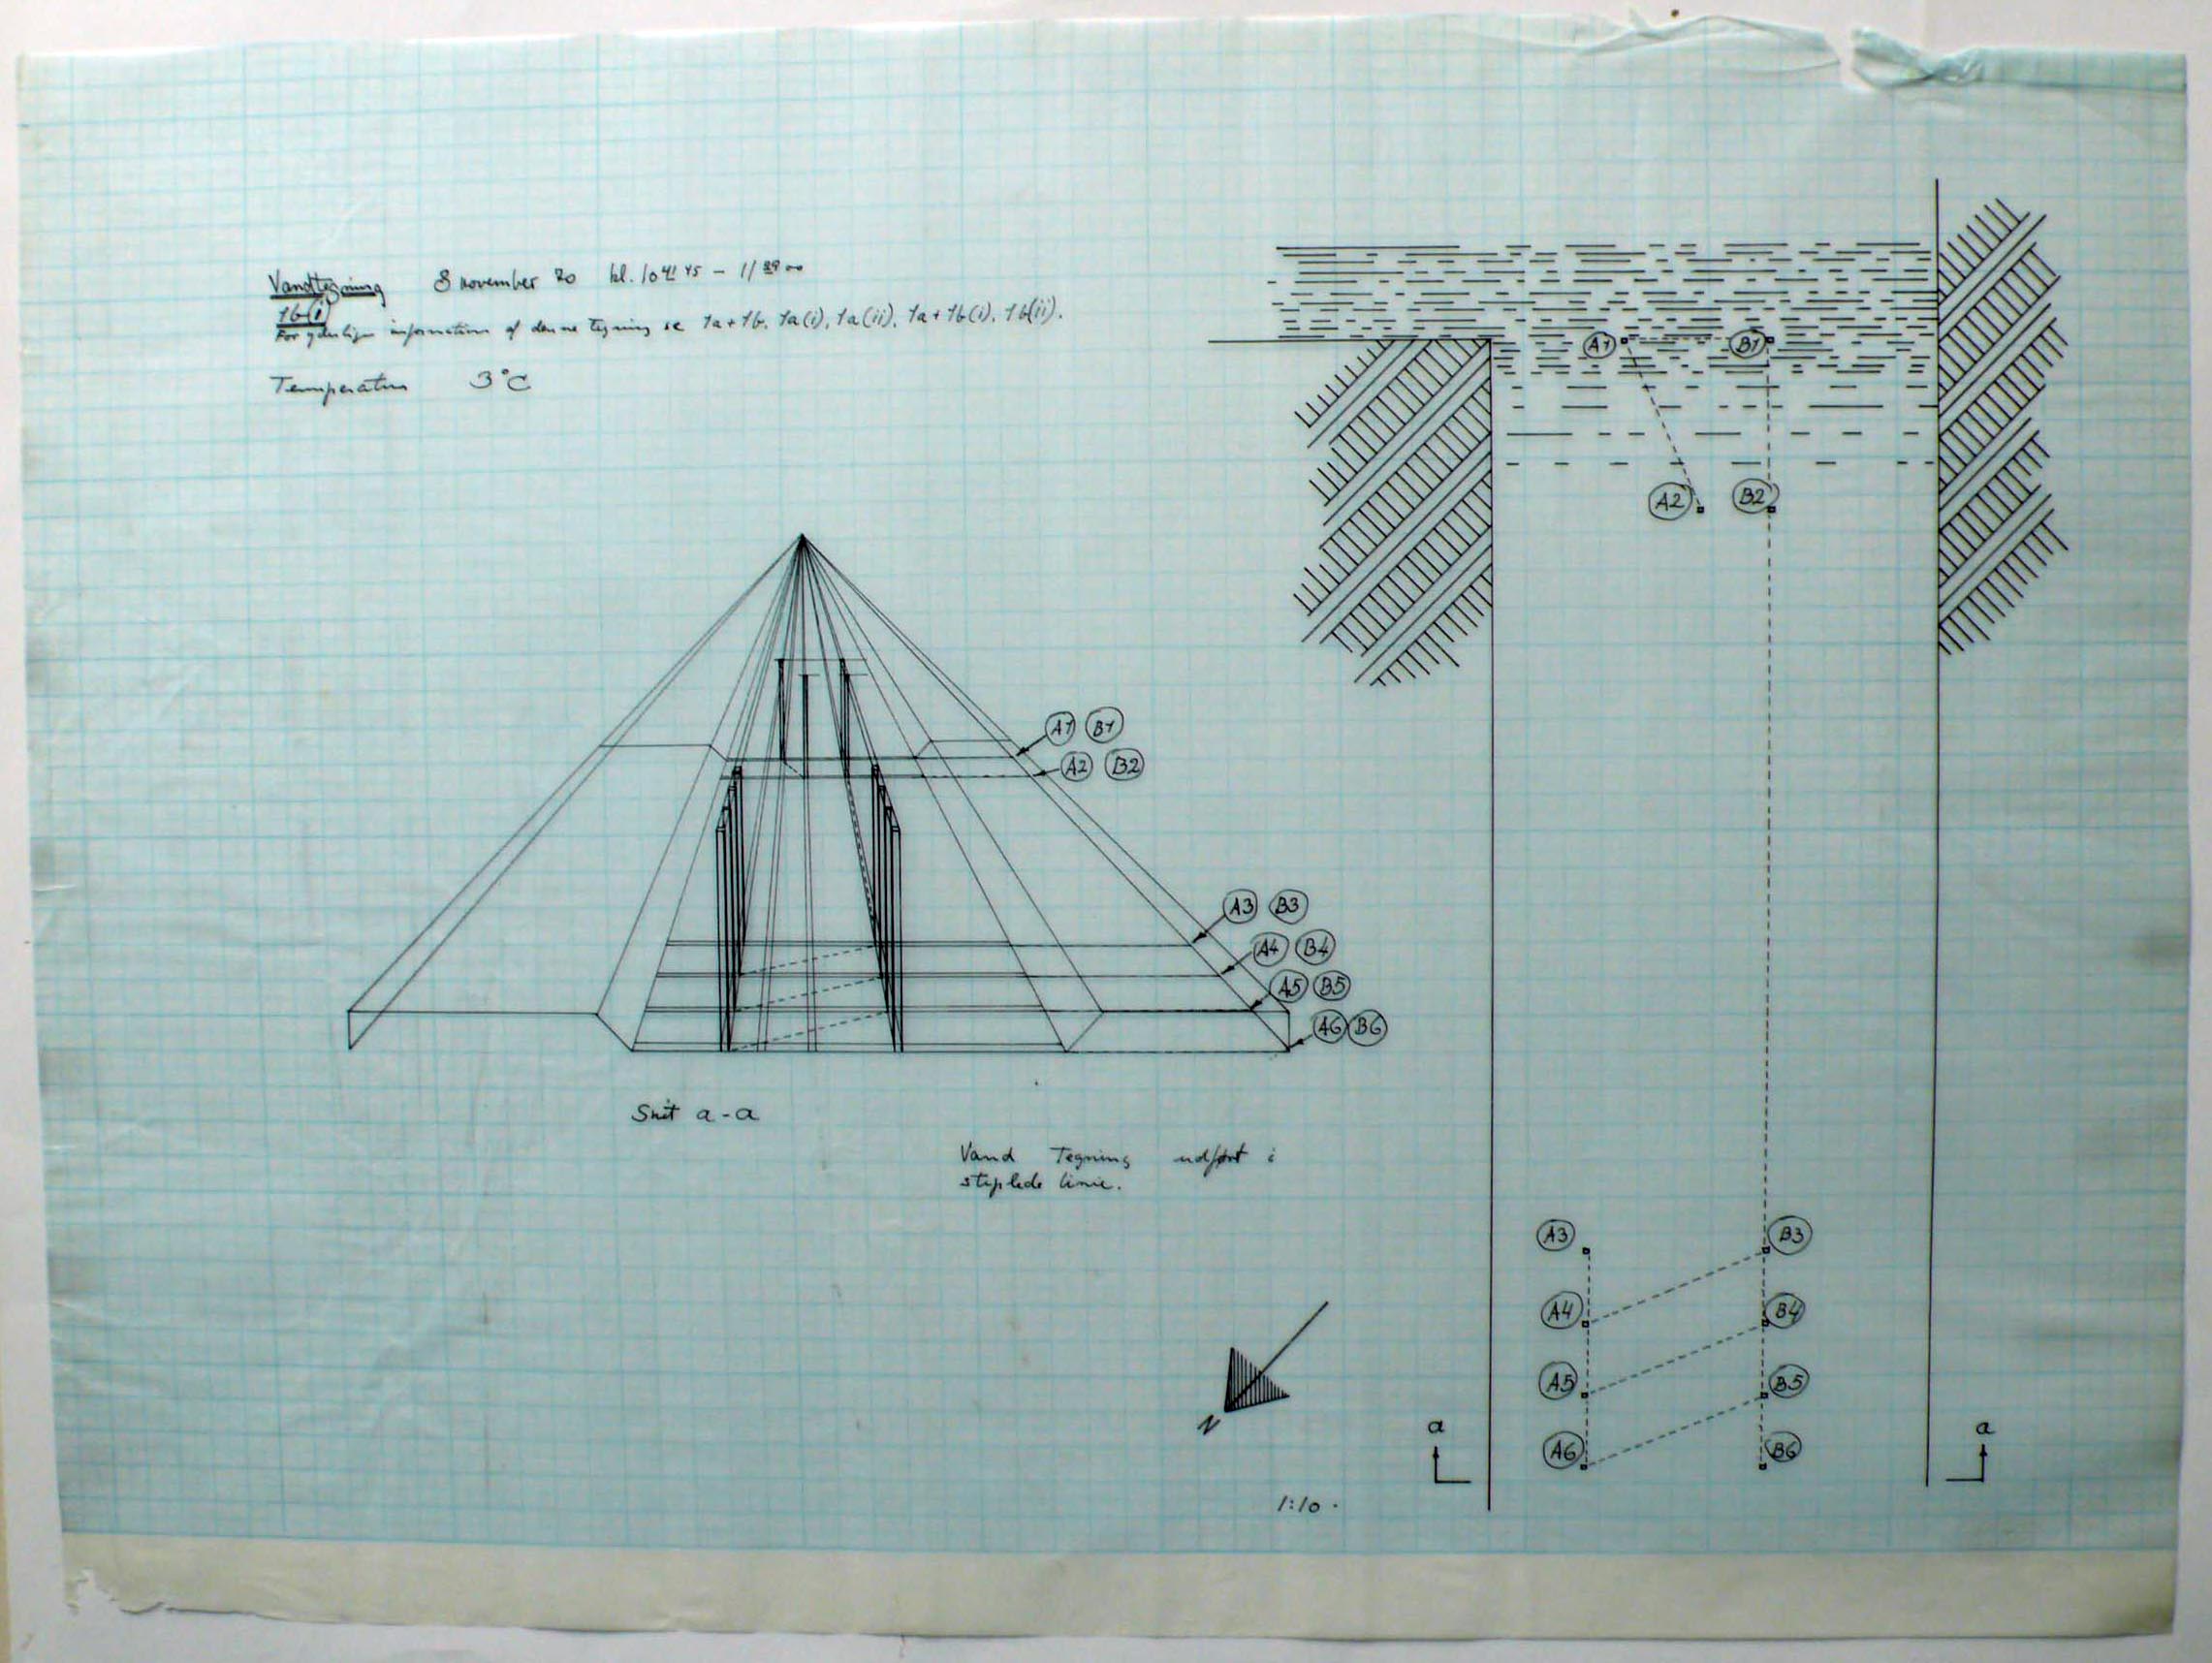 Vandtegning 8 november 70 kl. 10 41 45 - 11 39 00
1b(i)
For yderligere information af denne tegning se 1a+1b, 1a(i), 1a(ii), 1a+1b(i), 1b(ii).
Temperatur 3°C
A1 B1
A2 B2
A1 B1
A2 B2
A3 B3
A4 B4
A5 B5
A6 B6
Snit a-a
Vand Tegning udført i
stiplede linie.
A3 B3
A4 B4
A5 B5
A6 B6
N
a a
1:10.